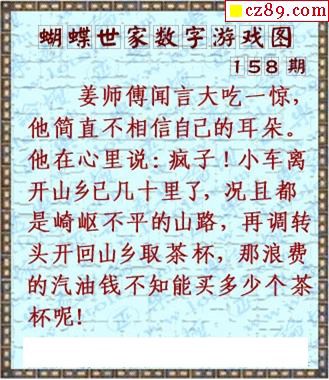 cz89.com
蝴蝶世家数字游戏图
158 期
姜师傅闻言大吃一惊，
他简直不相信自己的耳朵。
他在心里说：疯子！小车离
开山乡已几十里了，况且都
是崎岖不平的山路，再调转
头开回山乡取茶杯，那浪费
的汽油钱不知能买多少个茶
杯呢！